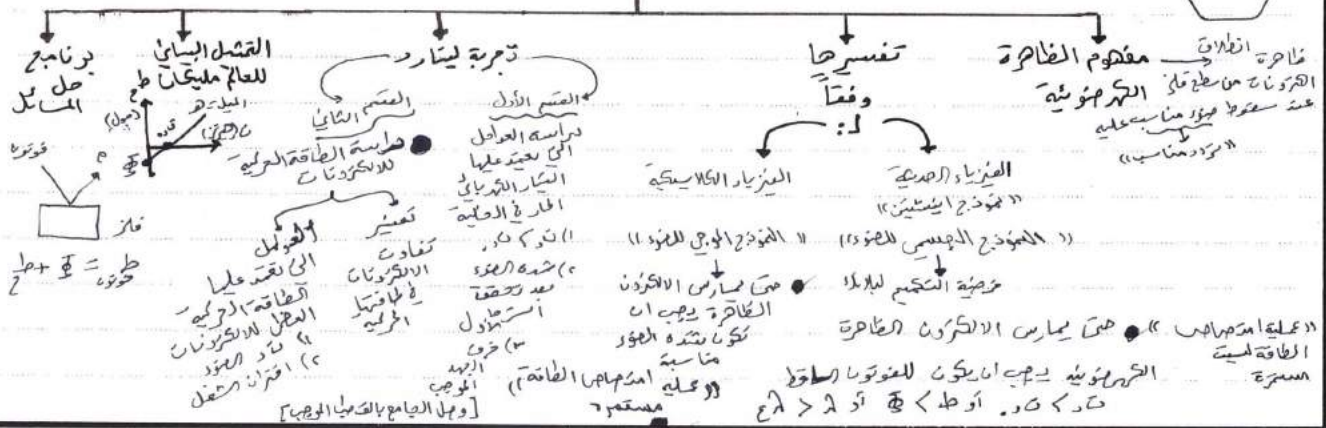 مفهوم الظاهرة
الكهرضوئية
ظاهرة انطلاق
الكترونات من سطح فلز
عند سقوط ضوء مناسب عليه
"تردد مناسب"
تفسيرها
وفقاً
لـ:
الفيزياء الحديثة
"نموذج اينشتين"
"النموذج الجسيمي للضوء"
فرضية التكميم لبلانك
حتى يمارس الالكترون الظاهرة
الكهرضوئية يجب ان يكون للفوتون الساقط
"عملية امتصاص
الطاقة ليست
مستمرة"
الفيزياء الكلاسيكية
"النموذج الموجي للضوء"
حتى يمارس الالكترون
الظاهرة يجب ان
تكون شدة الضوء
مناسبة
"عملية امتصاص الطاقة
مستمرة"
تجربة لينارد
القسم الأول
دراسة العوامل
التي يعتمد عليها
التيار الكهربائي
المار في الخلية
٢) شدة الضوء
بعد تحقق
الشرط الأول
٣) فرق
الجهد
الموجب
[وصل الجامع بالقطب الموجب]
القسم الثاني
دراسة الطاقة الحركية
للالكترونات
تفسير
تفاوت
الالكترونات
في طاقتها
الحركية
العوامل
التي تعتمد عليها
الطاقة الحركية
العظمى للالكترونات
١) تردد الضوء
٢) اقتران الشغل
التمثيل البياني
للعالم مليكان
برنامج
حل
المسائل
فوتون
فلز